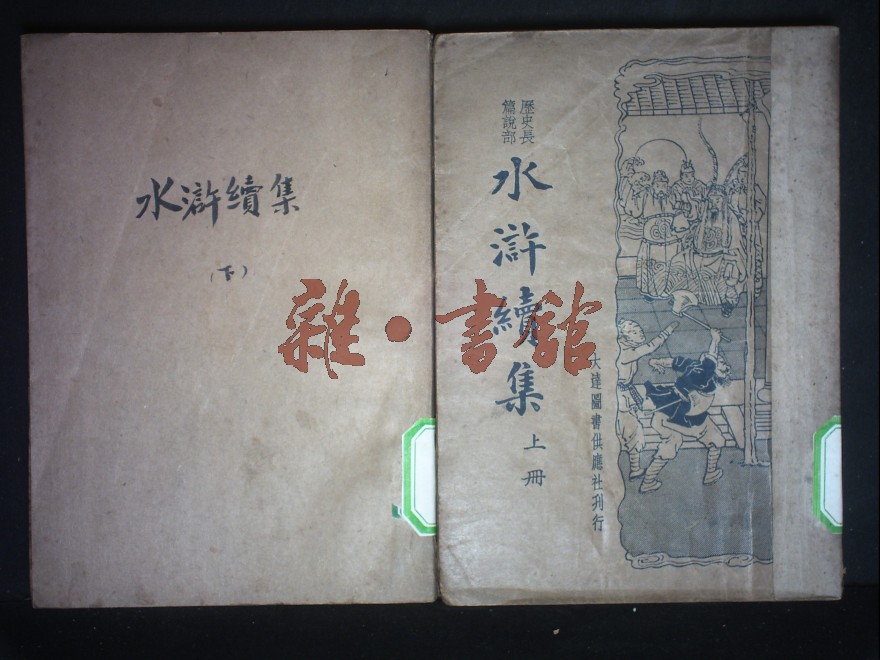 水滸續集
（下）
歷史長
篇說部
水滸續集
上冊
大達圖書供應社刊行
雜·書館